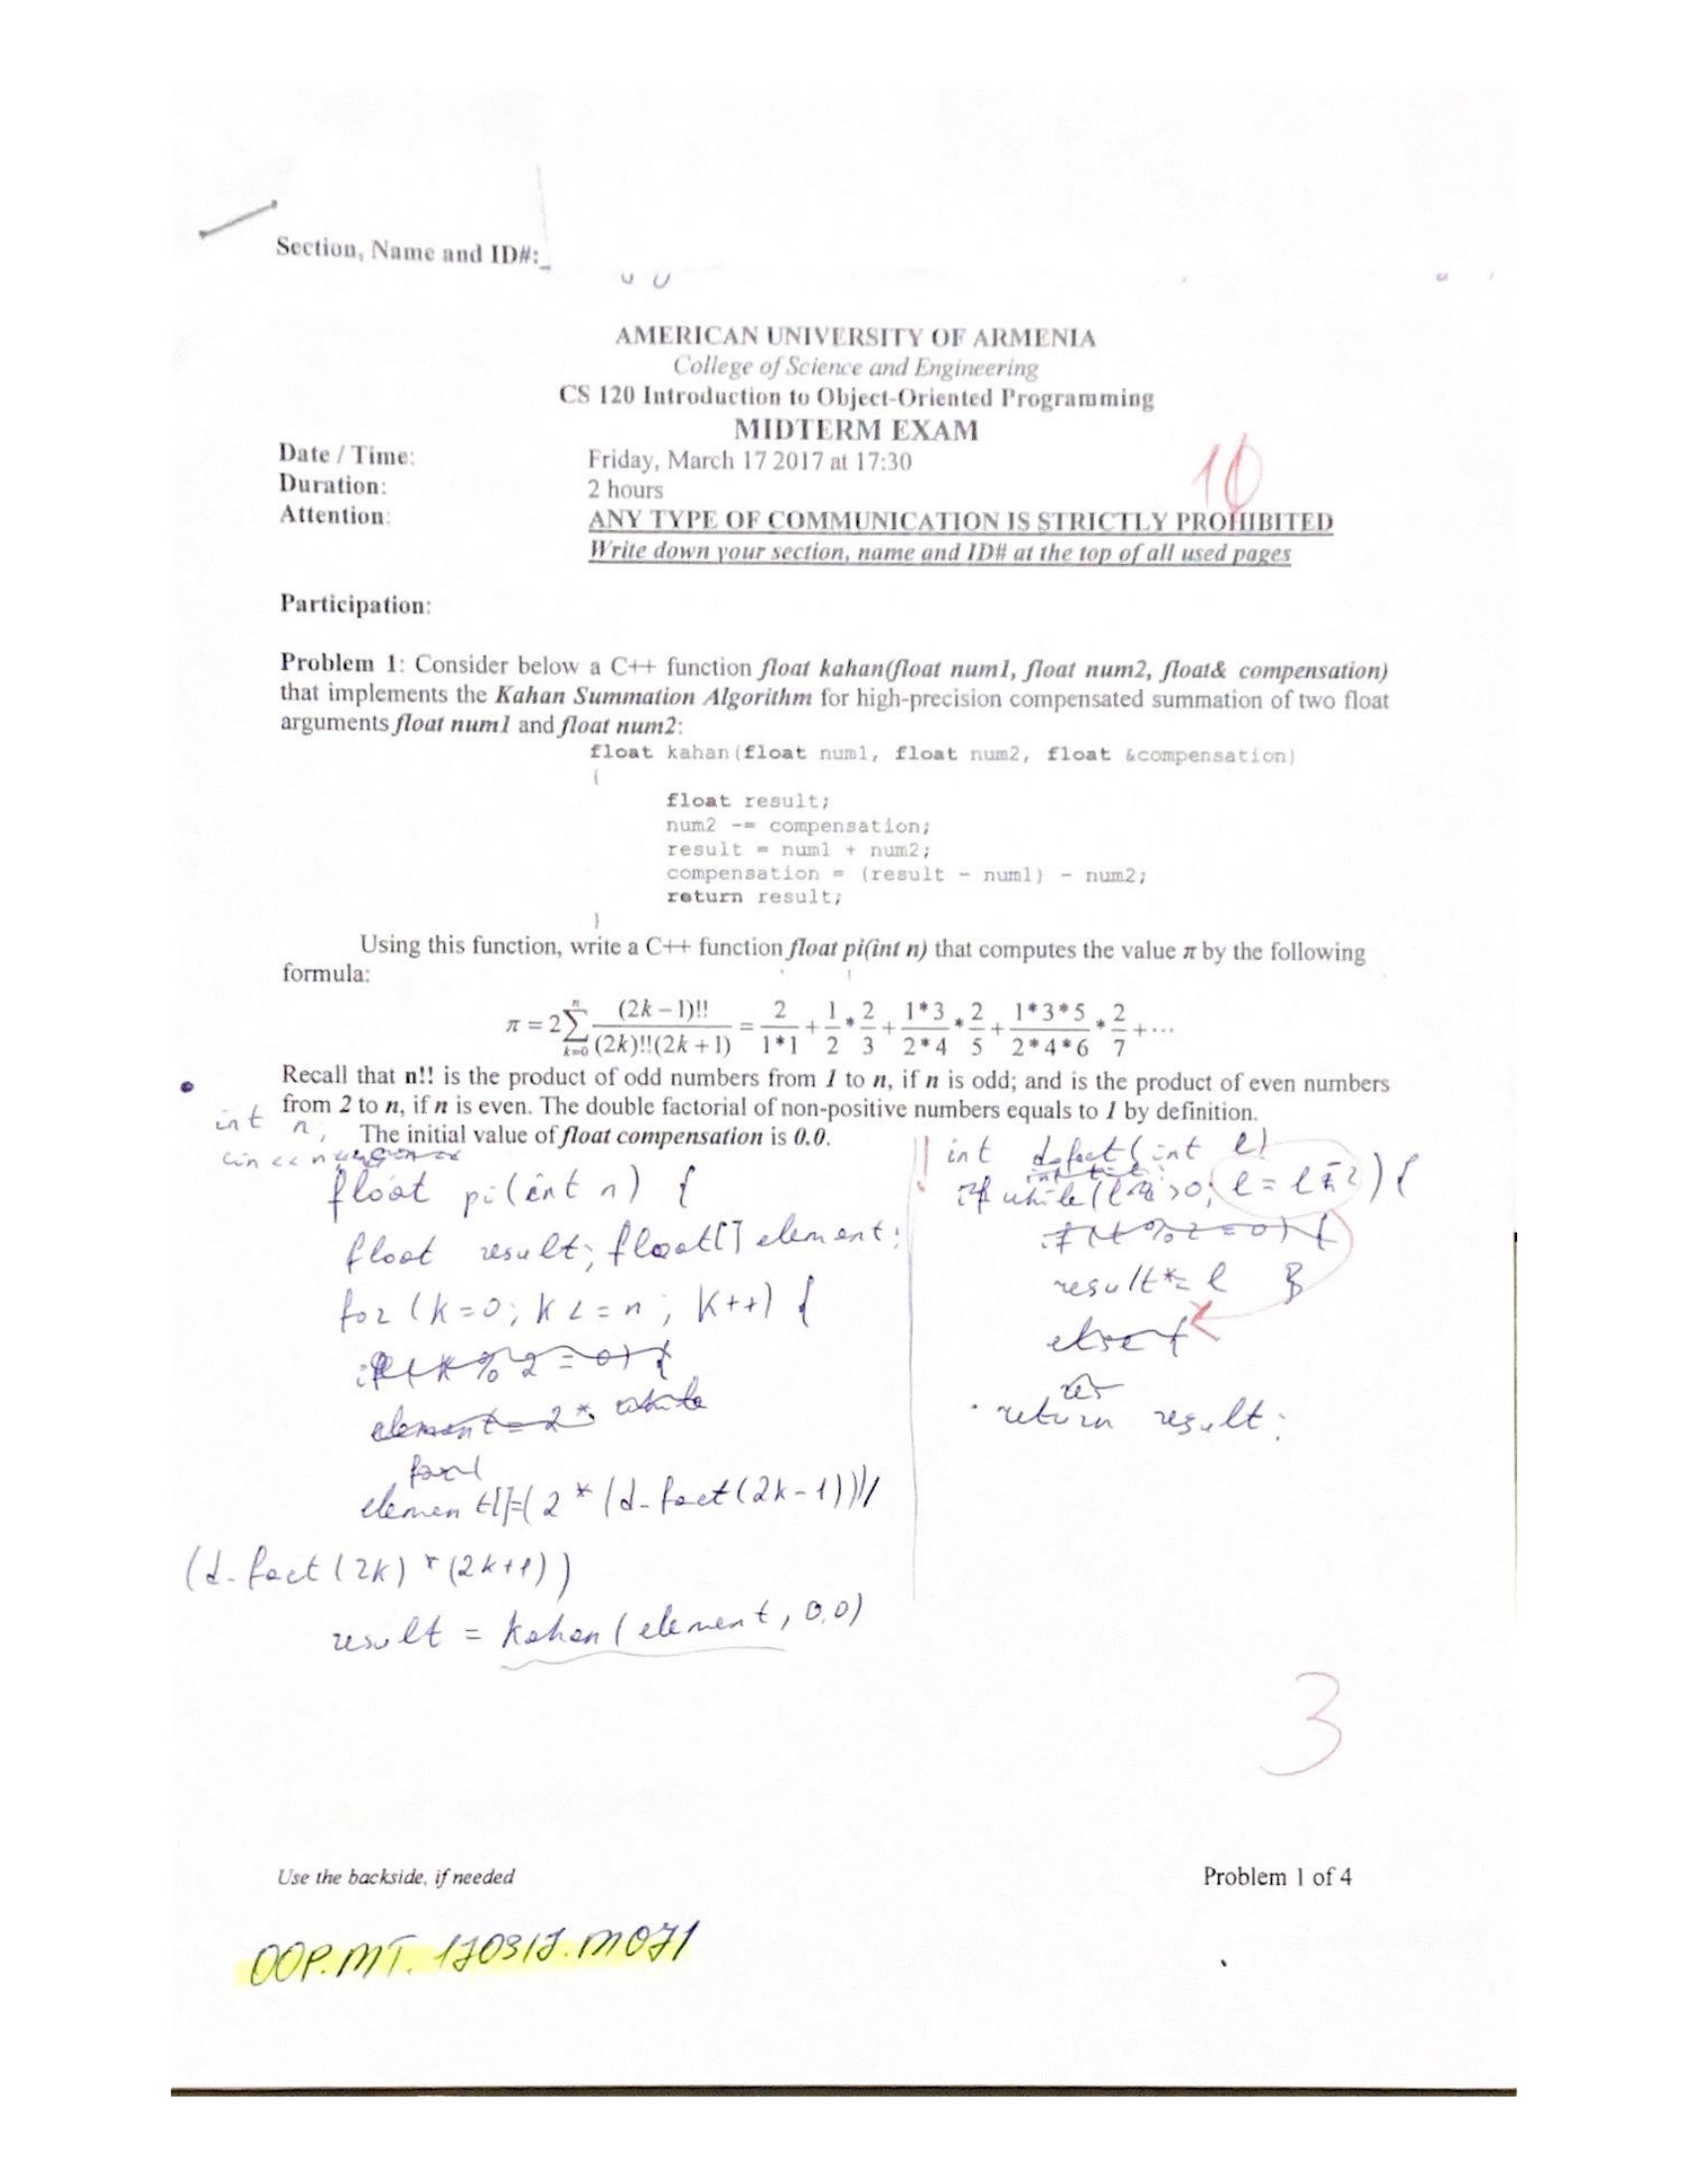 Section, Name and ID#:_
AMERICAN UNIVERSITY OF ARMENIA
College of Science and Engineering
CS 120 Introduction to Object-Oriented Programming
MIDTERM EXAM
Date / Time: Friday, March 17 2017 at 17:30
Duration: 2 hours
Attention: ANY TYPE OF COMMUNICATION IS STRICTLY PROHIBITED
Write down your section, name and ID# at the top of all used pages
10
Participation:
Problem 1: Consider below a C++ function float kahan(float num1, float num2, float& compensation)
that implements the Kahan Summation Algorithm for high-precision compensated summation of two float
arguments float num1 and float num2:
float kahan(float num1, float num2, float &compensation)
{
float result;
num2 -= compensation;
result = num1 + num2;
compensation = (result - num1) - num2;
return result;
}
Using this function, write a C++ function float pi(int n) that computes the value π by the following
formula:
π = 2∑_{k=0}^{n} (2k−1)!! / ((2k)!!(2k+1)) = 2/(1*1) + 1/2 * 2/3 + (1*3)/(2*4) * 2/5 + (1*3*5)/(2*4*6) * 2/7 + ⋯
Recall that n!! is the product of odd numbers from 1 to n, if n is odd; and is the product of even numbers
from 2 to n, if n is even. The double factorial of non-positive numbers equals to 1 by definition.
The initial value of float compensation is 0.0.
int n;
cin << n
float pi(int n) {
float result; float[] element;
for (k=0; k<=n; k++) {
if (k%2=0) {
element = 2*
element[]=(2*(d-fact(2k-1)))/
(d-fact(2k)*(2k+1))
result = kahan(element, 0,0)
int d-fact(int l)
if while(l>0; l=l-2) {
result*=l }
else {
return result;
3
Use the backside, if needed
Problem 1 of 4
OOP.MT.170317.M071